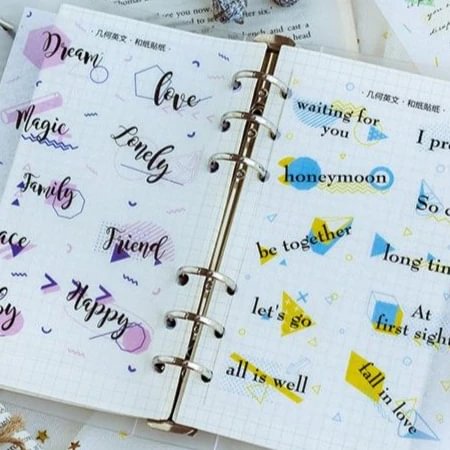 ·几何英文·和纸贴纸·
Dream
love
Magic
Lonely
Family
Friend
Happy
·几何英文·和纸贴纸·
waiting for
you
honeymoon
be together
let's go
all is well
I pre
So c
long tim
At
first sight
fall in love